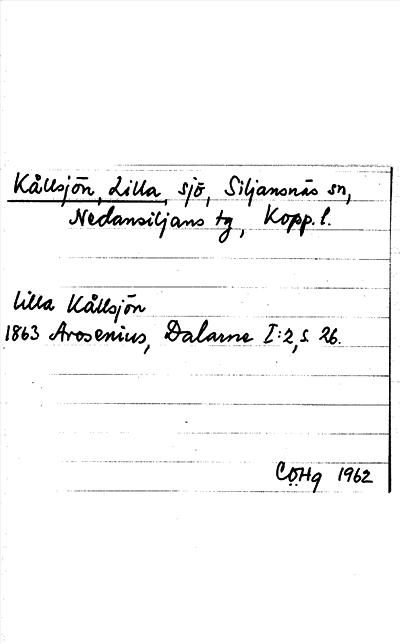 Kållsjön, Lilla, sjö, Siljansnäs sn,
Nedansiljans tg, Kopp. l.
Lilla Kållsjön
1863 Arosenius, Dalarne I:2, s. 26.
CÖHg 1962